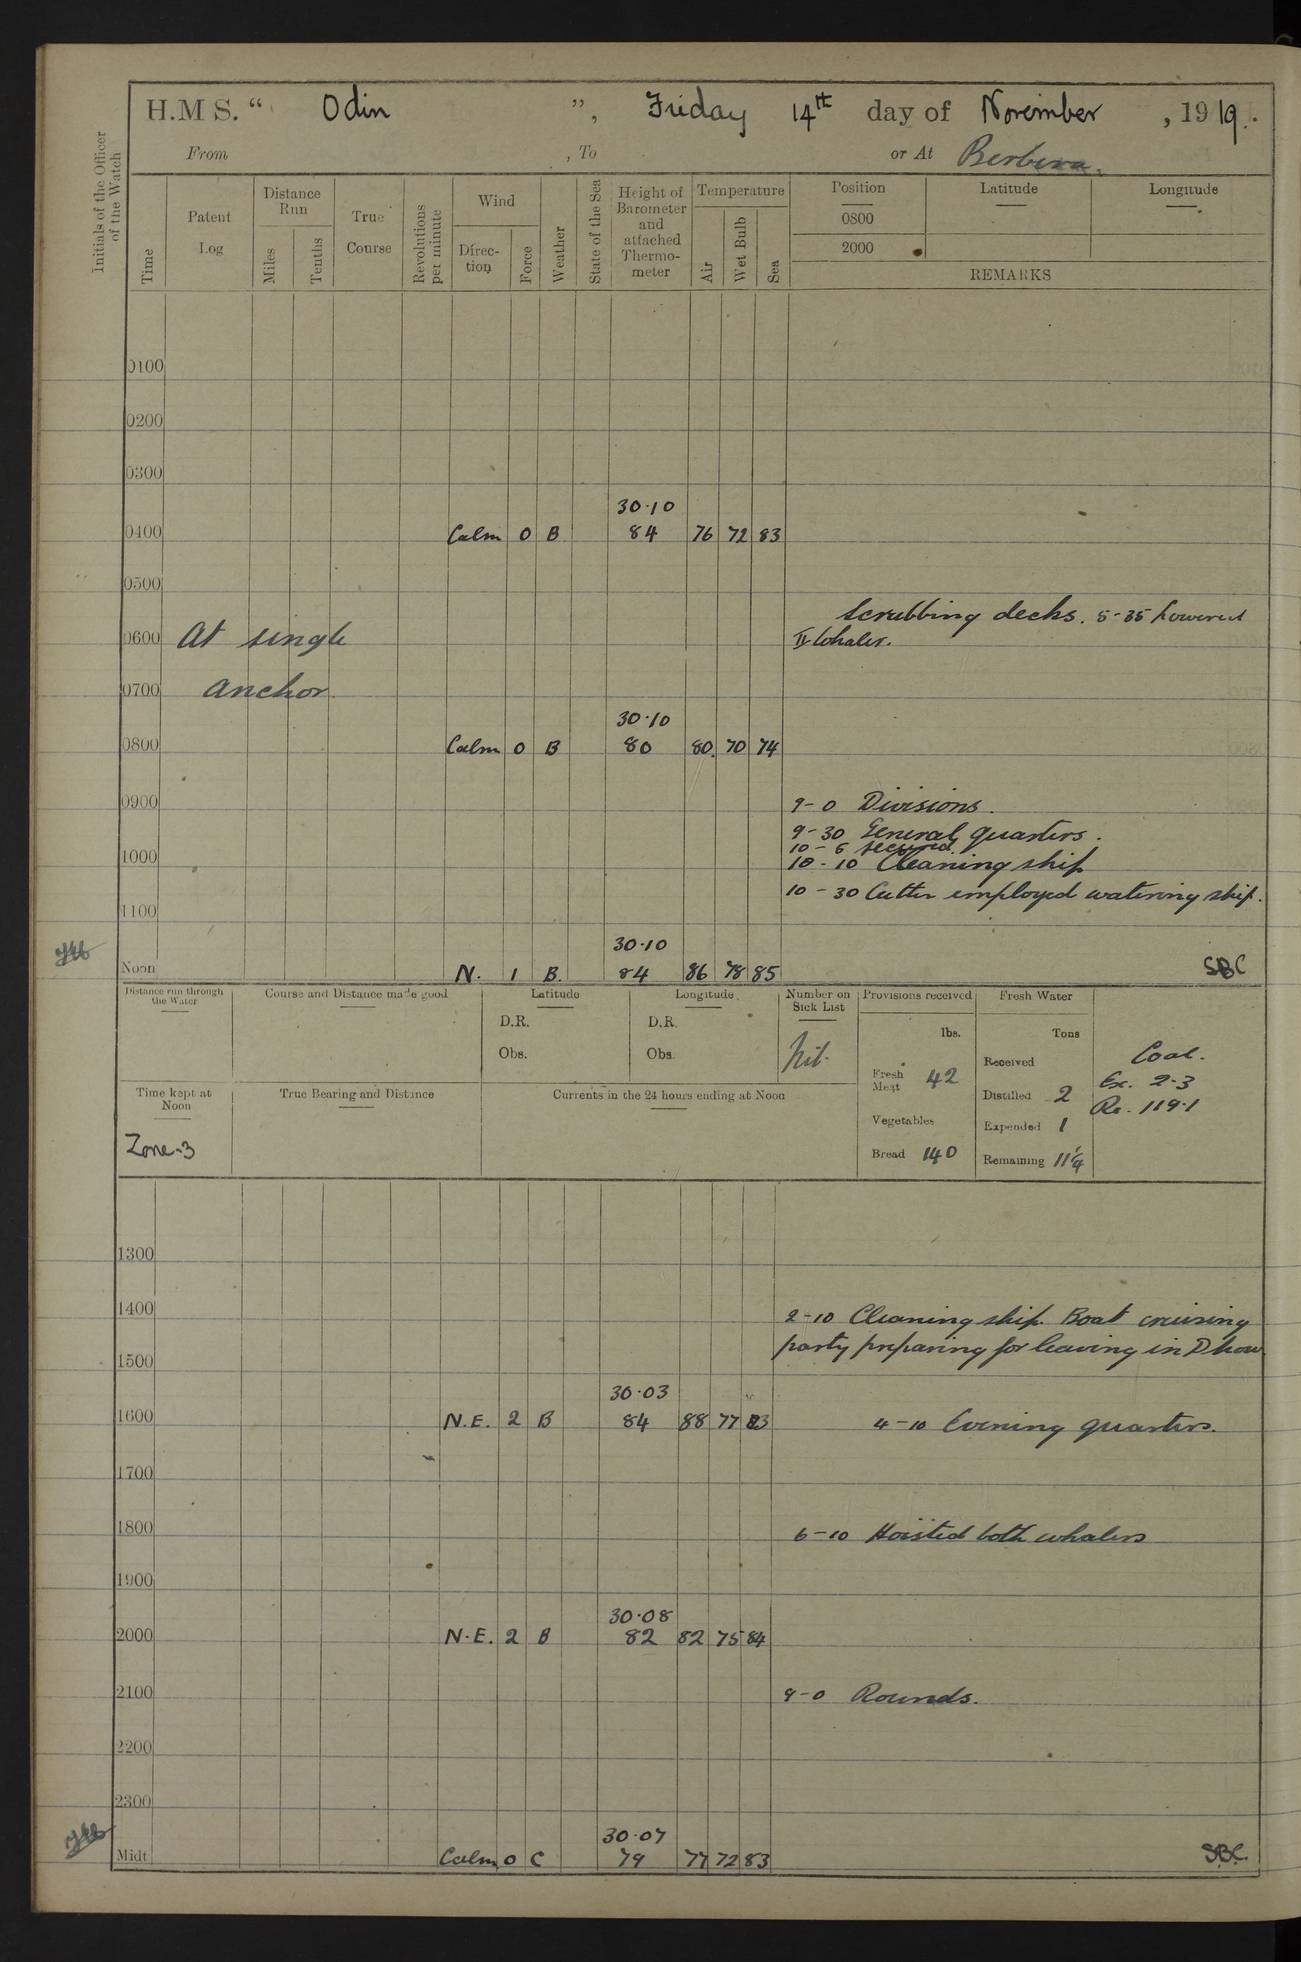 H.M S. “ Odin ”, Friday 14th day of November , 1919.
From , To or At Berbera.
Initials of the Officer of the Watch
Time
Patent Log
Distance Run
Miles
Tenths
True Course
Revolutions per minute
Wind
Direc-tion
Force
Weather
State of the Sea
Height of Barometer and attached Thermo-meter
Temperature
Air
Wet Bulb
Sea
Position Latitude Longitude
0800
2000
REMARKS
0100
0200
0300
30·10
0400 Calm 0 B 84 76 72 83
0500
Scrubbing decks. 5-35 Lowered
0600 At single II Whaler.
0700 anchor
30·10
0800 Calm 0 B 80 80 70 74
0900 9-0 Divisions.
9-30 General quarters.
10-5 secured
1000 10-10 Cleaning ship
10-30 Cutter employed watering ship.
1100
30·10
Noon N. 1 B. 84 86 78 85 SBC
Distance run through the Water
Course and Distance made good
Latitude
D.R.
Obs.
Longitude
D.R.
Obs.
Number on Sick List
Nil.
Provisions received
lbs.
Fresh Meat 42
Vegetables
Bread 140
Fresh Water
Tons
Received
Distilled 2
Expended 1
Remaining 11¼
Coal.
Ex. 2·3
Re. 119·1
Time kept at Noon
Zone-3
True Bearing and Distance
Currents in the 24 hours ending at Noon
1300
1400 2-10 Cleaning ship. Boat cruising
party preparing for leaving in Dhow.
1500
30·03
1600 N.E. 2 B 84 88 77 83 4-10 Evening quarters.
1700
1800 6-10 Hoisted both whalers
1900
30·08
2000 N.E. 2 B 82 82 75 84
2100 9-0 Rounds.
2200
2300
30·07
Midt Calm 0 C 79 77 72 83 SBC.